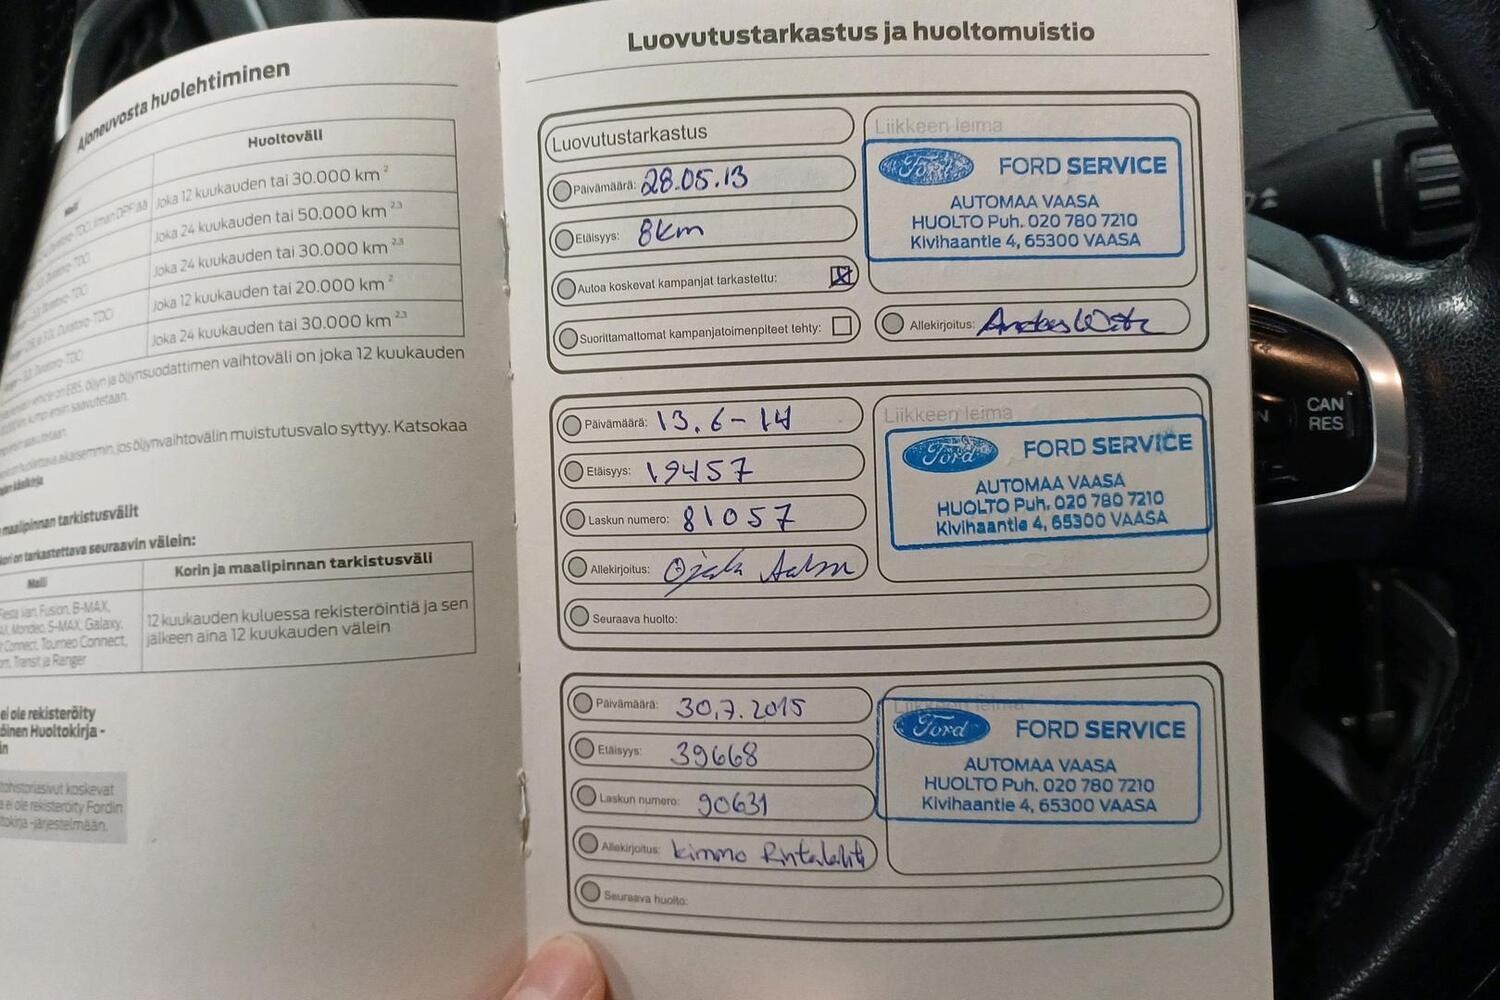 Ajoneuvosta huolehtiminen
Malli
Huoltoväli
Joka 12 kuukauden tai 30.000 km 2
Joka 24 kuukauden tai 50.000 km 2,3
Joka 24 kuukauden tai 30.000 km 2,3
Joka 12 kuukauden tai 20.000 km 2
Joka 24 kuukauden tai 30.000 km 2,3
öljyn ja öljynsuodattimen vaihtoväli on joka 12 kuukauden
aikaisemmin, jos öljynvaihtovälin muistutusvalo syttyy. Katsokaa
maalipinnan tarkistusvälit
on tarkastettava seuraavin välein:
Malli
Korin ja maalipinnan tarkistusväli
Fiesta Van, Fusion, B-MAX,
Mondeo, S-MAX, Galaxy,
Connect, Tourneo Connect,
Transit ja Ranger
12 kuukauden kuluessa rekisteröintiä ja sen
jälkeen aina 12 kuukauden välein
ei ole rekisteröity
Huoltokirja -
koskevat
ei ole rekisteröity Fordin
-järjestelmään.
Luovutustarkastus ja huoltomuistio
Luovutustarkastus
Päivämäärä: 28.05.13
Etäisyys: 8km
Autoa koskevat kampanjat tarkastettu:
Suorittamattomat kampanjatoimenpiteet tehty:
Liikkeen leima
Ford FORD SERVICE
AUTOMAA VAASA
HUOLTO Puh. 020 780 7210
Kivihaantie 4, 65300 VAASA
Allekirjoitus:
Päivämäärä: 13.6-14
Etäisyys: 19457
Laskun numero: 81057
Allekirjoitus:
Seuraava huolto:
Liikkeen leima
Ford FORD SERVICE
AUTOMAA VAASA
HUOLTO Puh. 020 780 7210
Kivihaantie 4, 65300 VAASA
Päivämäärä: 30.7.2015
Etäisyys: 39668
Laskun numero: 90631
Allekirjoitus: Kimmo Rintalahti
Seuraava huolto:
Liikkeen leima
Ford FORD SERVICE
AUTOMAA VAASA
HUOLTO Puh. 020 780 7210
Kivihaantie 4, 65300 VAASA
CAN
RES